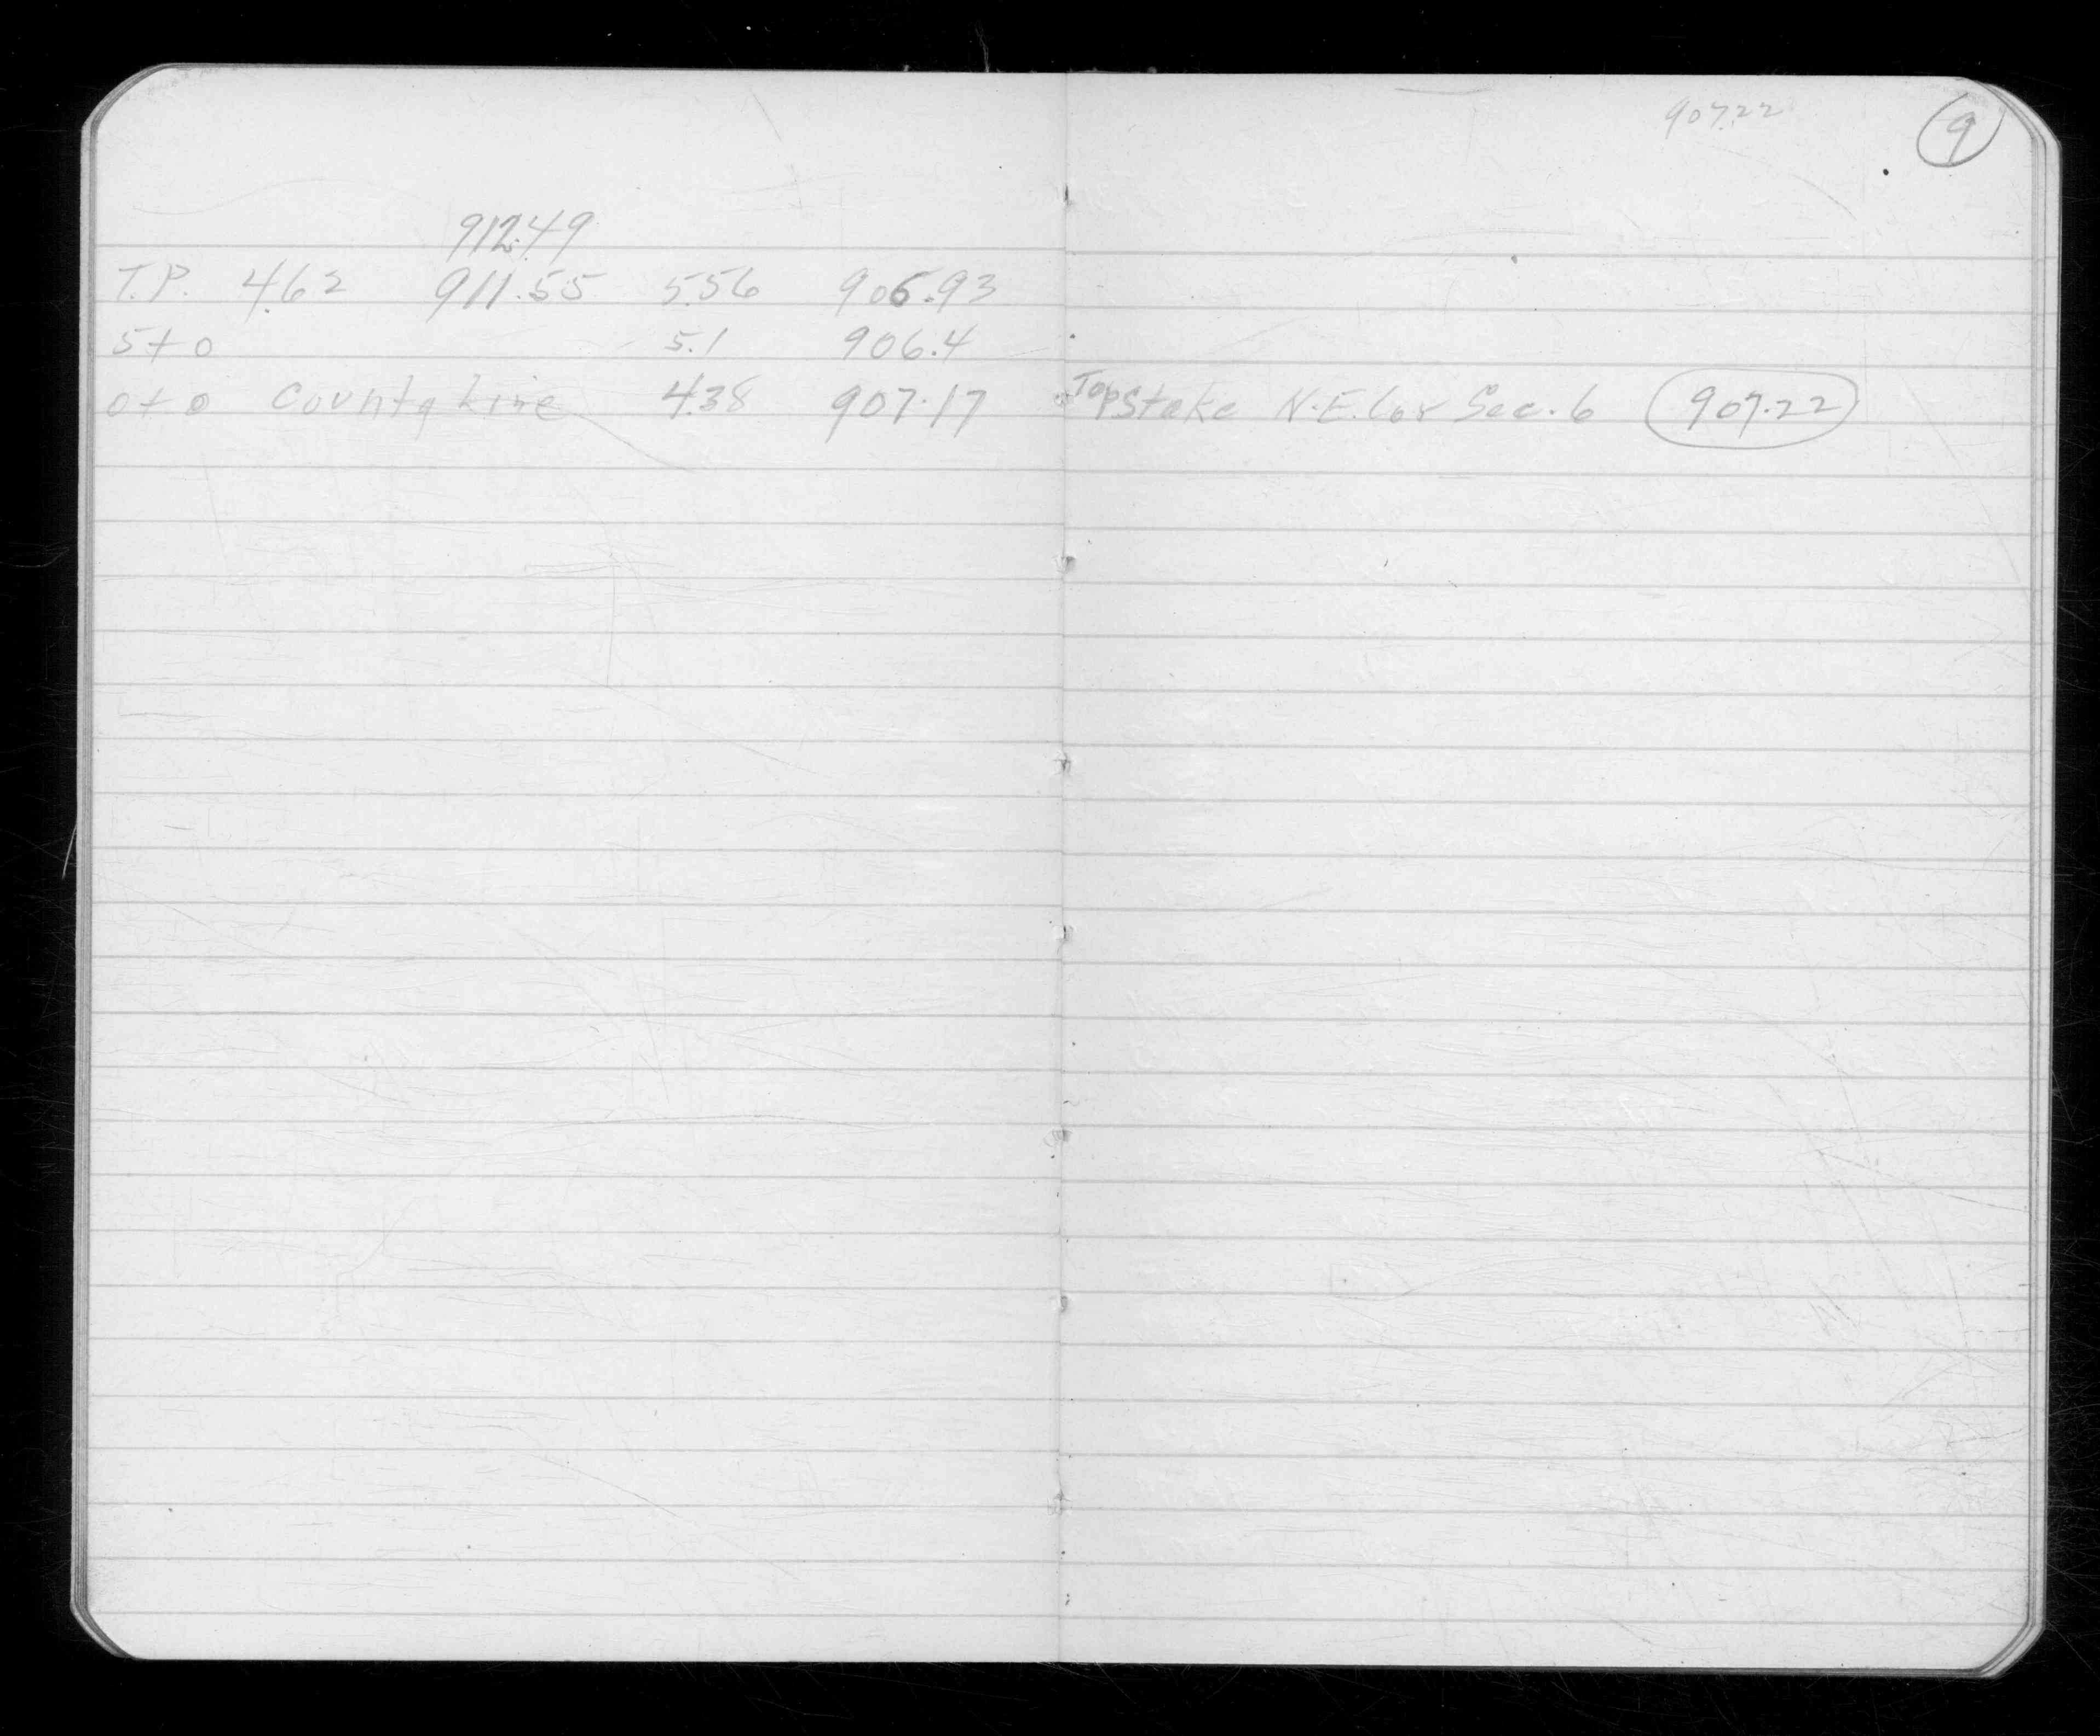 907.22 9
912.49
T.P. 4.62 911.55 5.56 906.93
5+0 5.1 906.4
0+0 County Line 4.38 907.17 Top Stake N.E. Cor Sec. 6 907.22